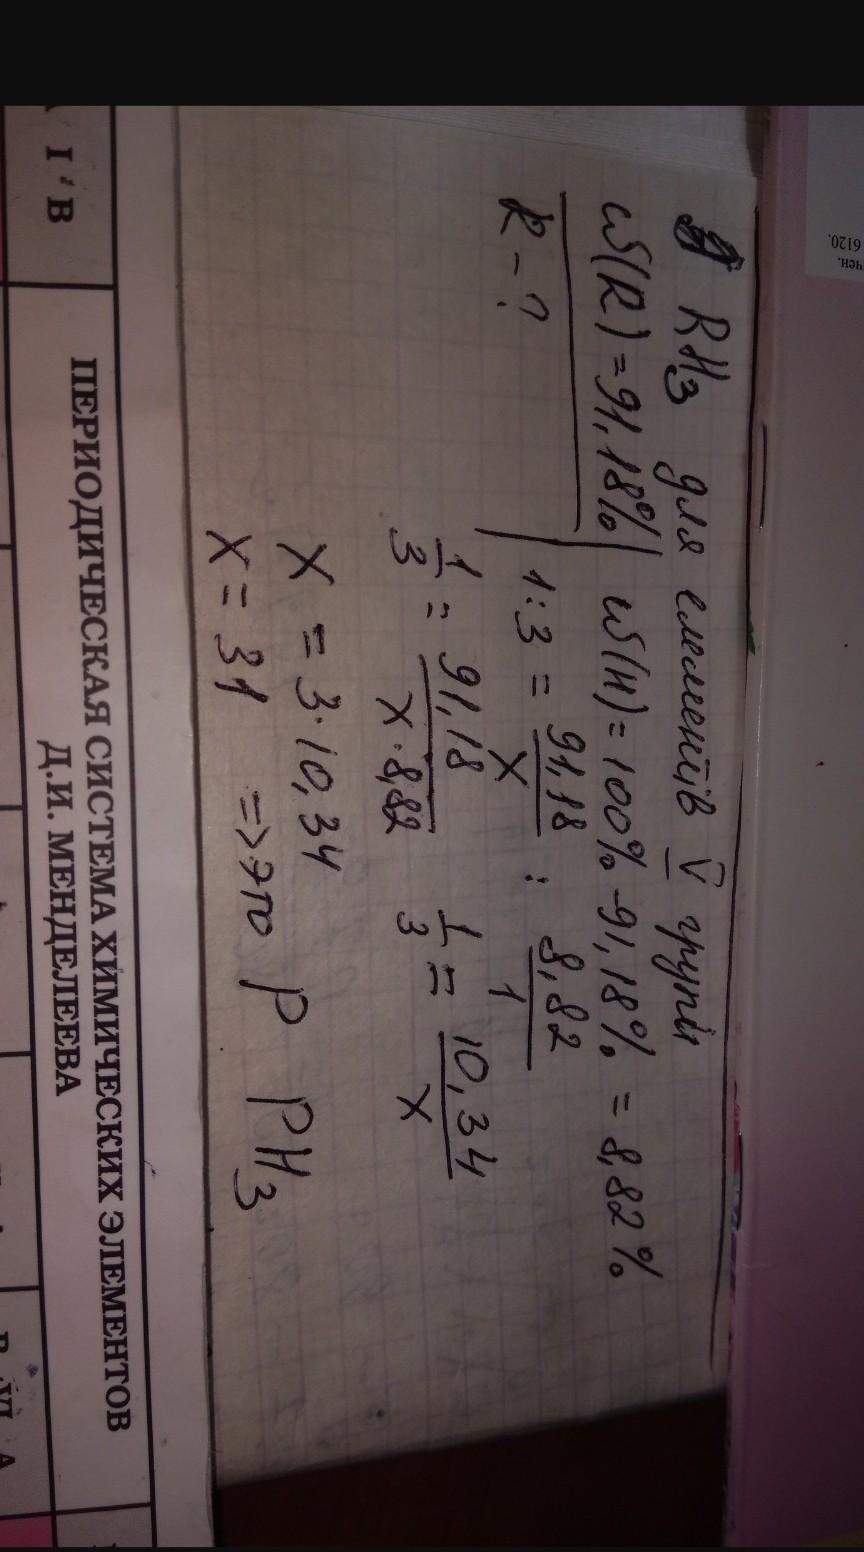 RH₃ для елементів V групи
ω(R) = 91,18%
R - ?
ω(H) = 100% - 91,18% = 8,82%
1:3 = 91,18/x : 8,82/1
1/3 = 91,18/x·8,82    1/3 = 10,34/x
x = 3·10,34
x = 31 => это P PH₃
I В
ПЕРИОДИЧЕСКАЯ СИСТЕМА ХИМИЧЕСКИХ ЭЛЕМЕНТОВ
Д.И. МЕНДЕЛЕЕВА
6120.